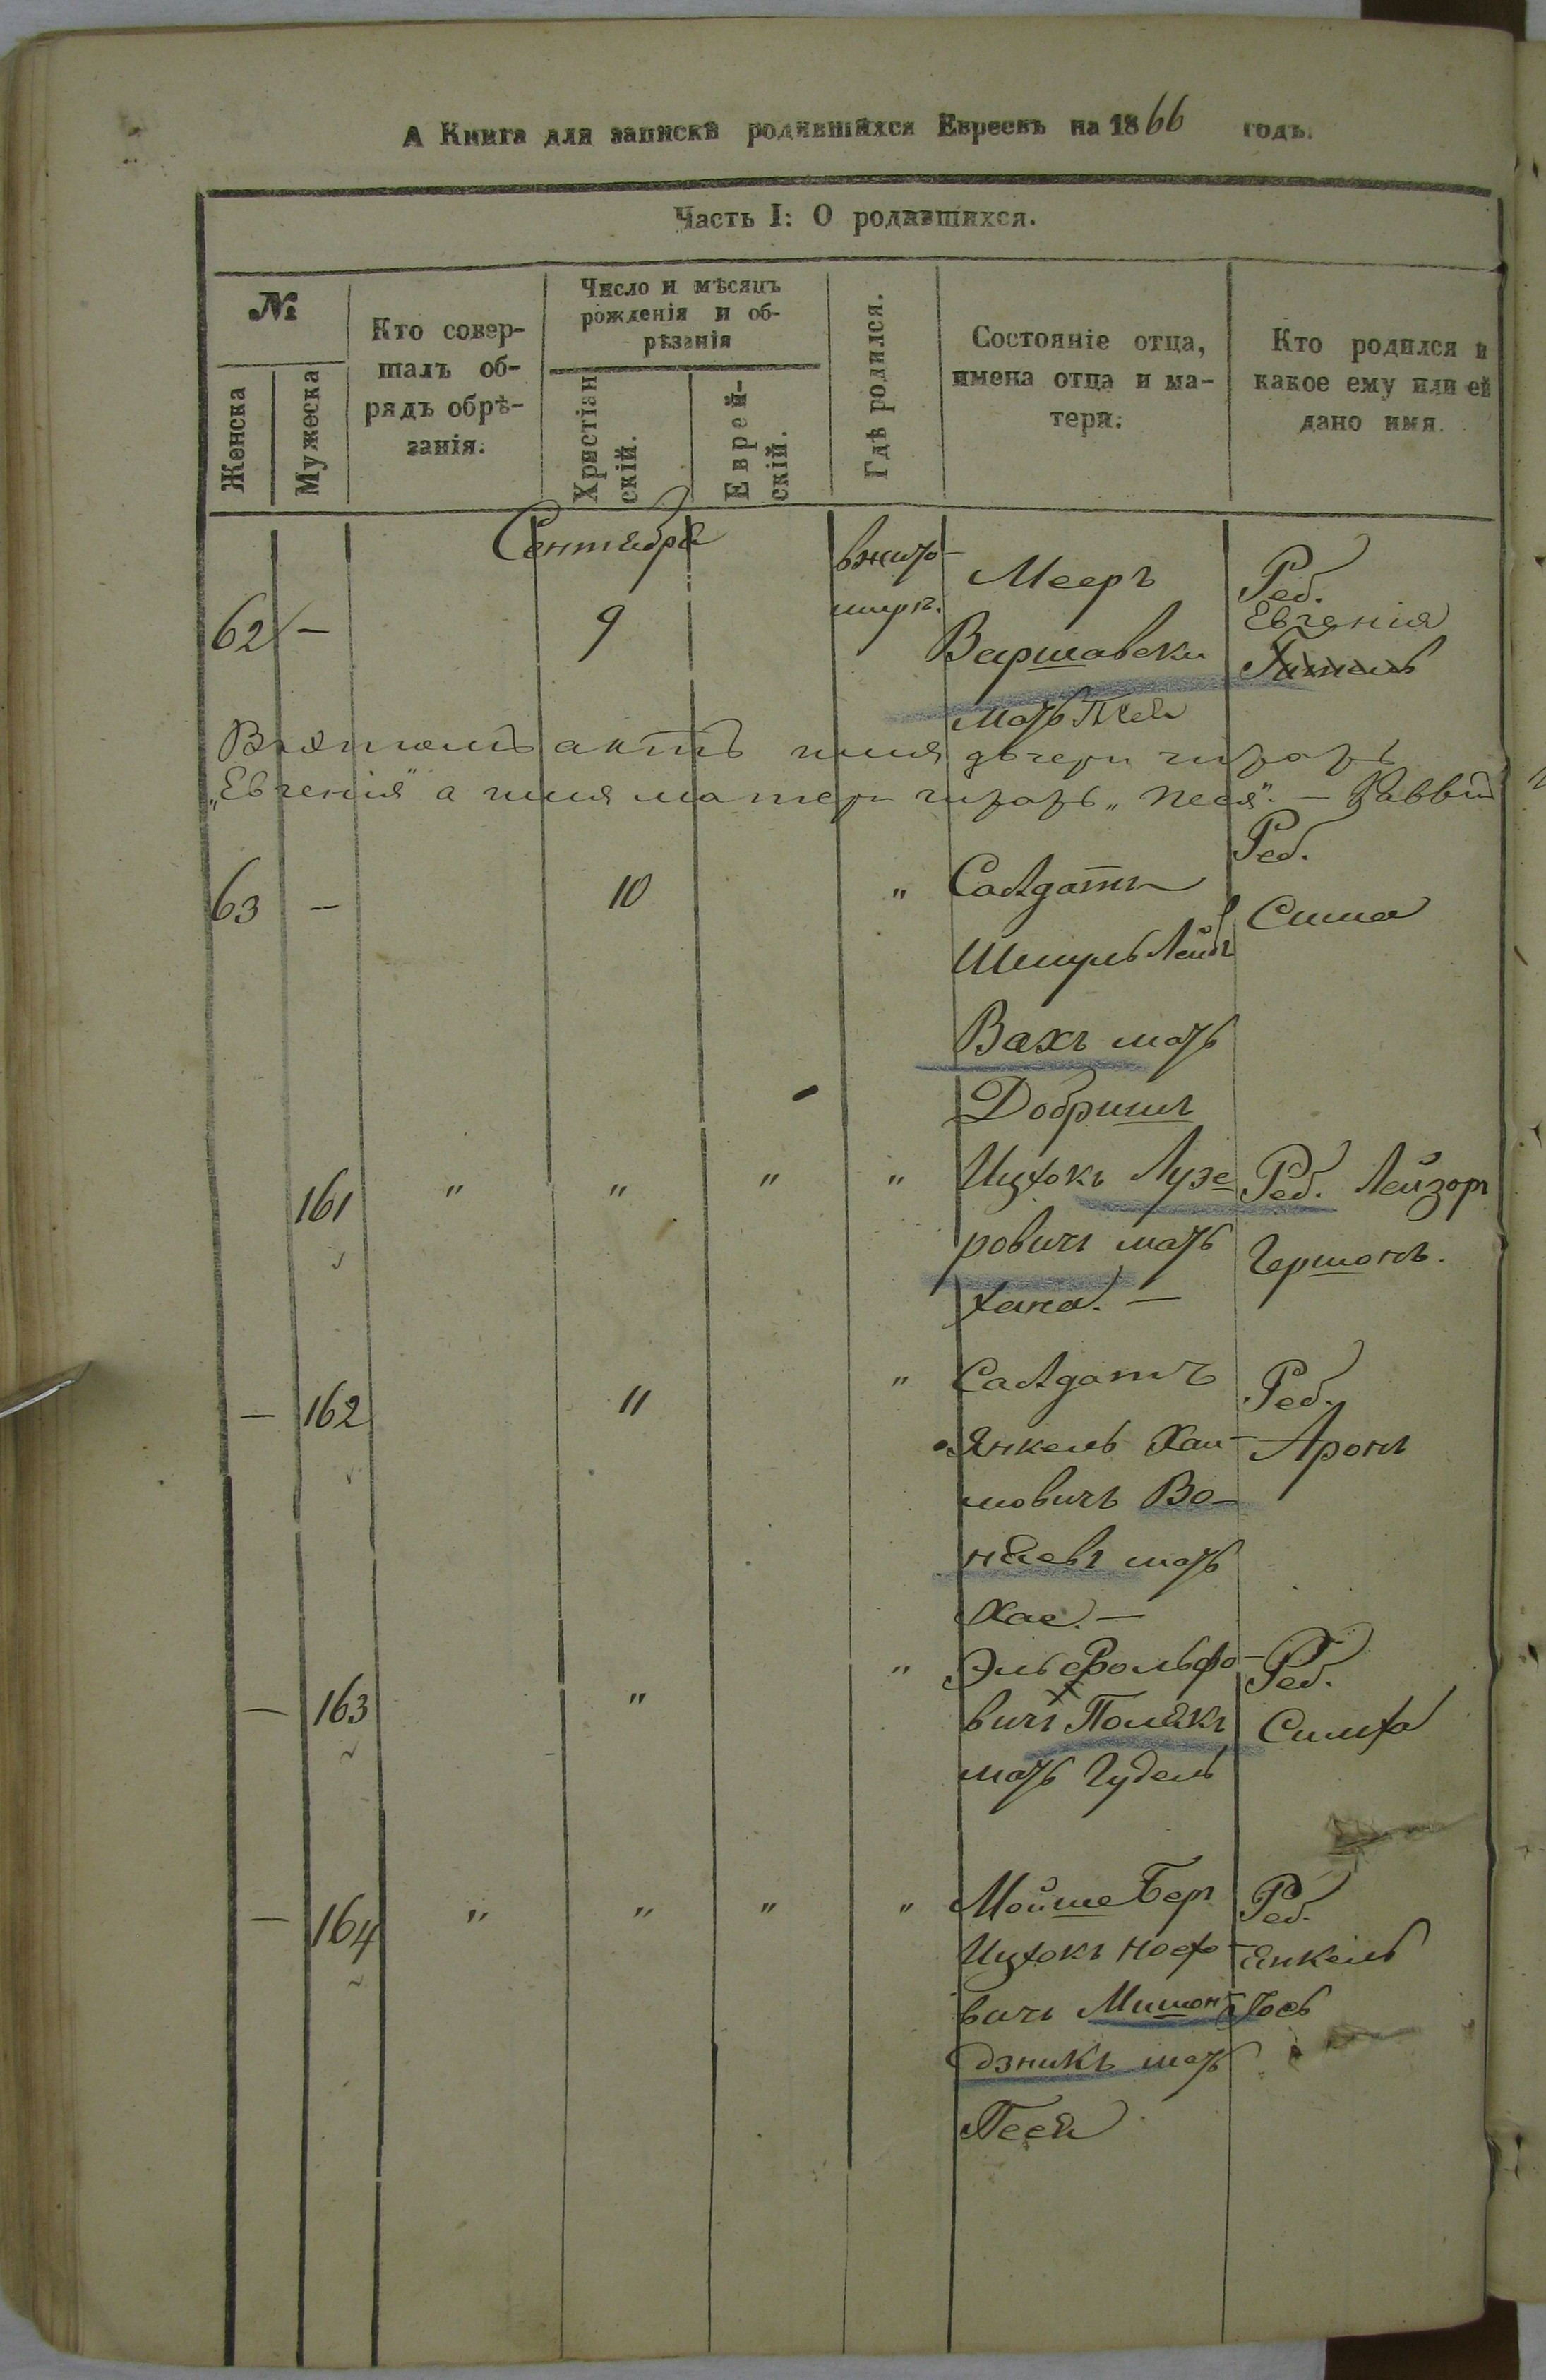 А Книга для записки родившихся Евреевъ на 1866 годъ.
Часть I: О родившихся.
№
Женска
Мужеска
Кто совер-
шалъ об-
рядъ обрѣ-
занія.
Число и мѣсяцъ
рожденія и об-
рѣзанія
Христіан
скій.
Еврей-
скій.
Гдѣ родился.
Состояніе отца,
имена отца и ма-
тери.
Кто родился и
какое ему или ей
дано имя.
Сентября
62 — 9
вжито-
мирѣ.
Мееръ
Варшавски
мать
Реб.
Евгенія
Въ этомъ актѣ имя дочери читать
„Евгенія" а имя матери читать „Песя". — Раввин
63 — 10 "
Салдатъ
Шмуль Лейбъ
Вахъ мать
Добришъ
Реб.
Сима
161 " " " "
Ицхокъ Лузе-
ровичъ мать
Хана. —
Реб. Лейзоръ
Гершонъ.
— 162 11 "
Салдатъ
Янкель Хаи-
мовичъ Во-
няевъ мать
Хае. —
Реб.
Аронъ
— 163 " "
Эль Вольфо-
вичъ Полякъ
мать Гудель
Реб.
Симха
— 164 " " " "
Мойше Беръ
Ицхокъ
вичъ Мишон-
дзникъ мать
Песя
Реб.
Янкель
Іось